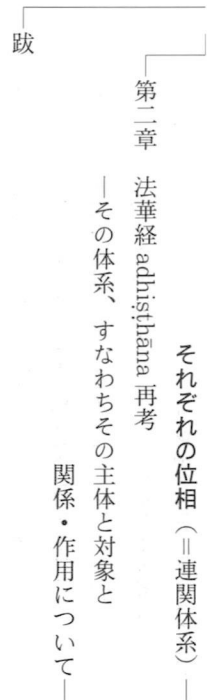 それぞれの位相（＝連関体系）―
第二章　法華経 adhiṣṭhāna 再考
―その体系、すなわちその主体と対象と
関係・作用について―
跋